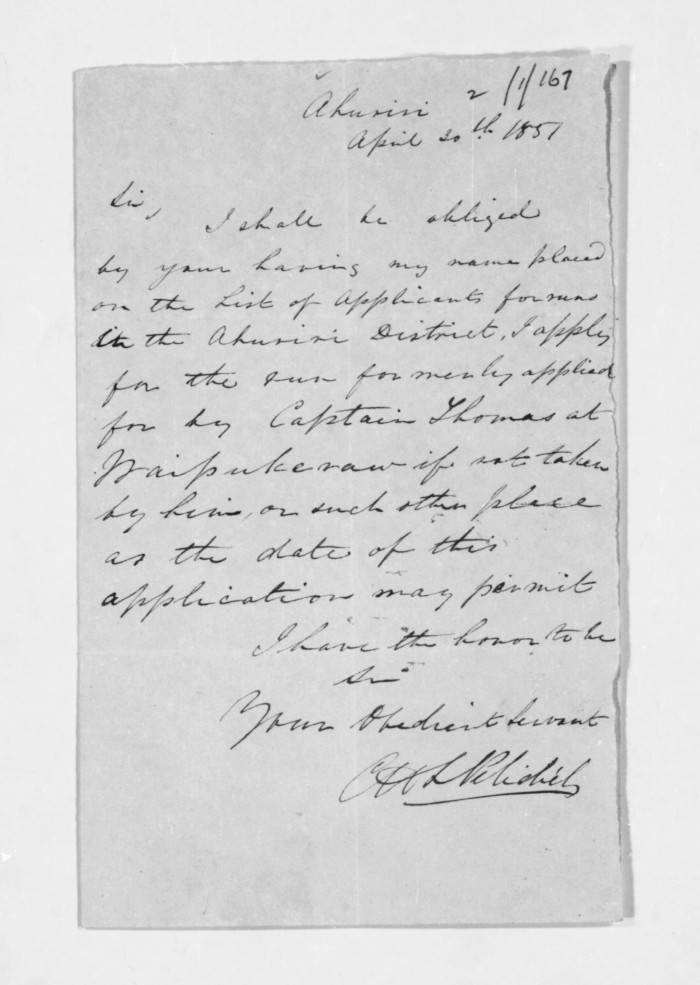 2/1/167
Ahuriri
April 20th 1851
Sir,
I shall be obliged
by your having my name placed
on the List of Applicants for runs
in the Ahuriri District, I apply
for the run formerly applied
for by Captain Thomas at
Waipukeraw if not taken
by him, or such other place
as the date of this
application may permit
I have the honor to be
Sir
Your Obedient Servant